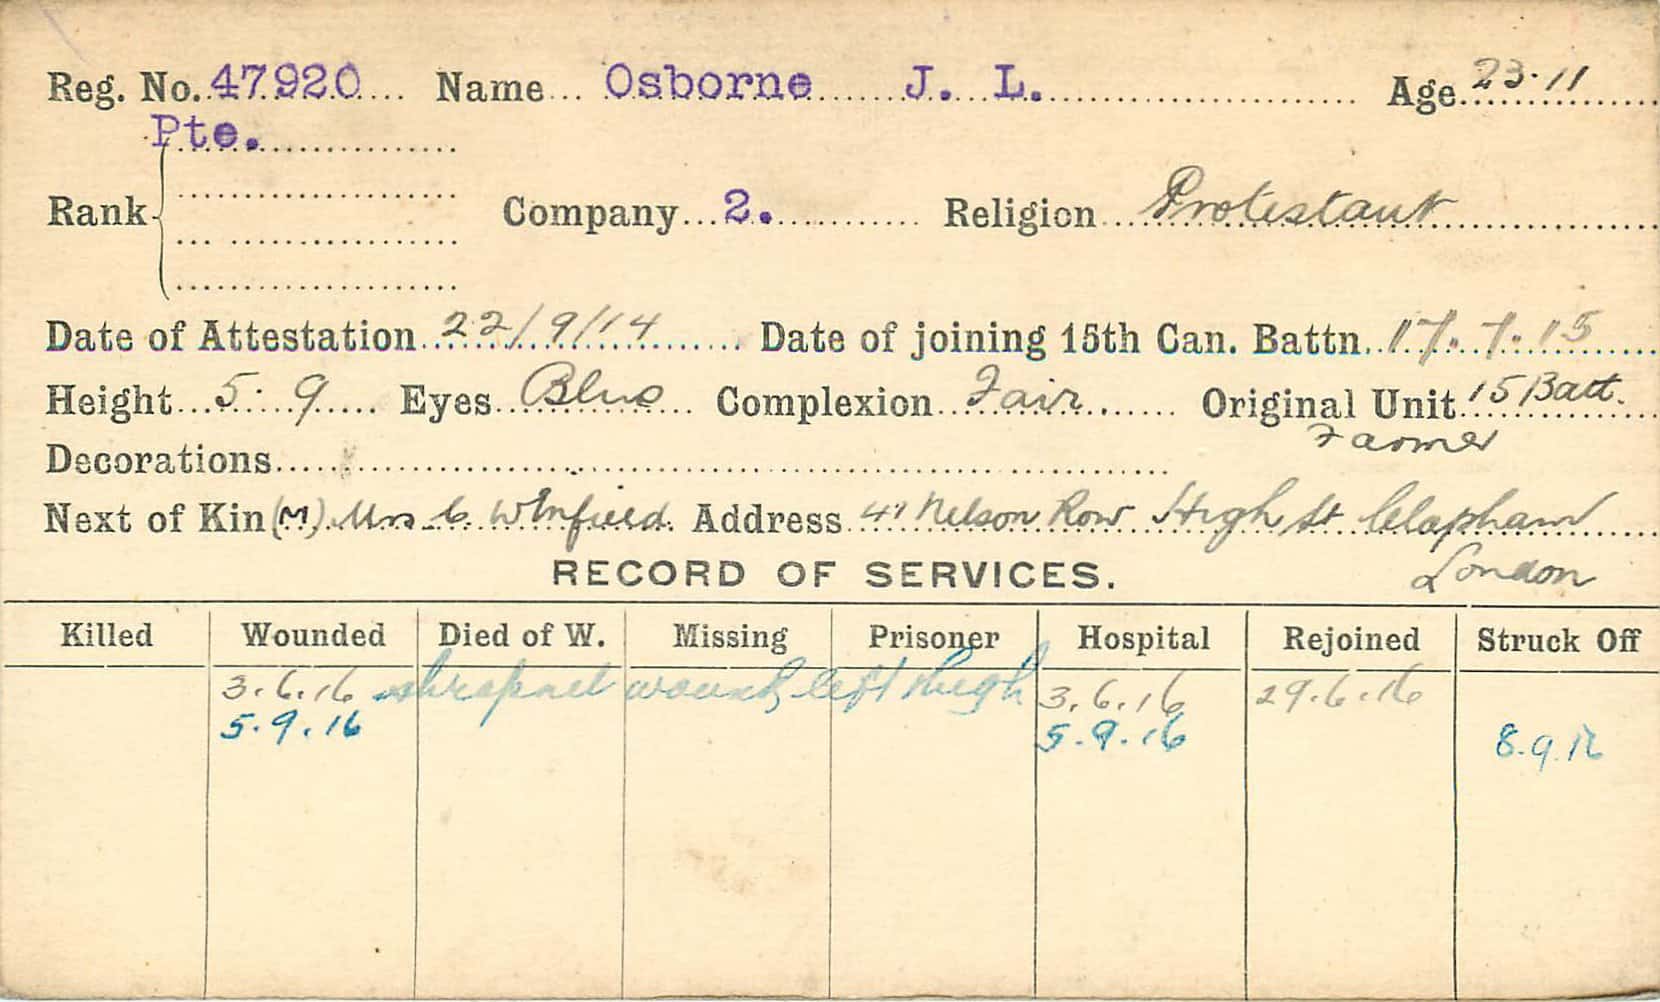 Reg. No. 47920 Name Osborne J. L. Age 23.11
Pte.
Rank Company 2. Religion Protestant
Date of Attestation 22/9/14 Date of joining 15th Can. Battn. 17.7.15
Height 5.9 Eyes Blue Complexion Fair Original Unit 15 Batt.
Farmer
Decorations
Next of Kin (M) Mrs C. Winfield. Address 47 Nelson Row High St Clapham
London
RECORD OF SERVICES.
Killed Wounded Died of W. Missing Prisoner Hospital Rejoined Struck Off
3.6.16 shrapnel wound, left thigh 3.6.16 29.6.16
5.9.16 5.9.16 8.9.16